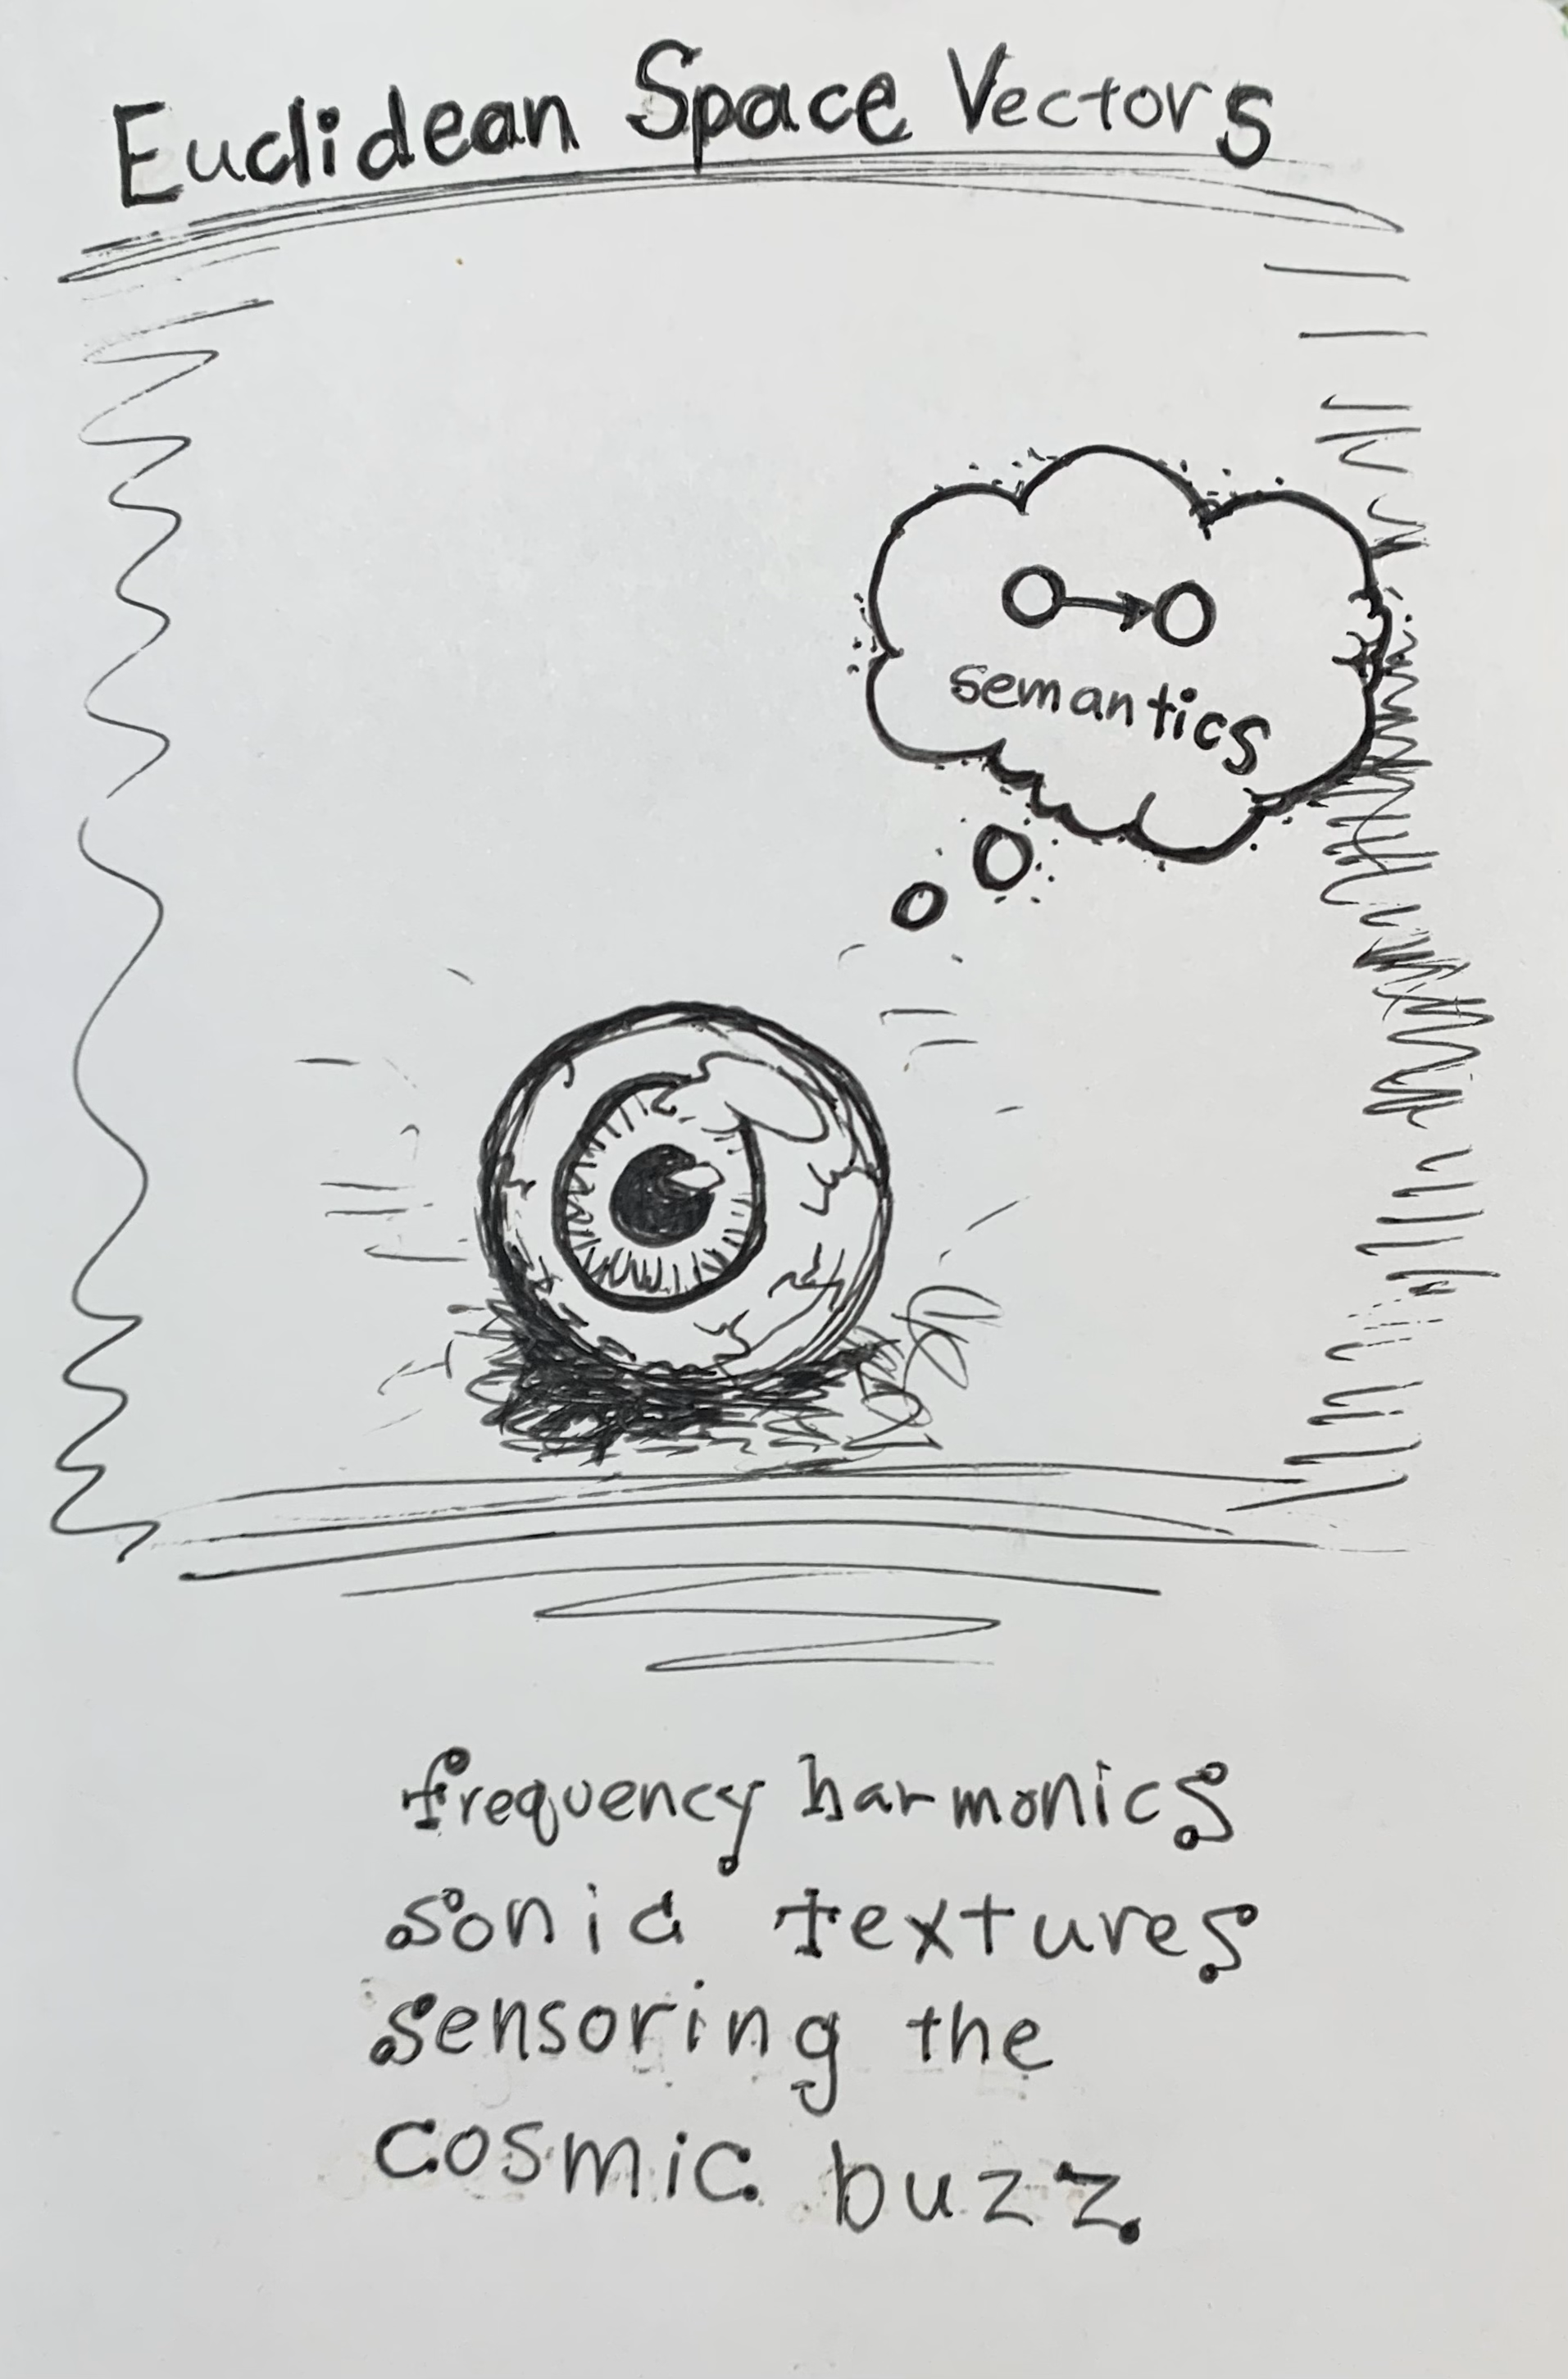 Euclidean Space Vectors
semantics
frequency harmonics
sonic textures
sensoring the
cosmic buzz.